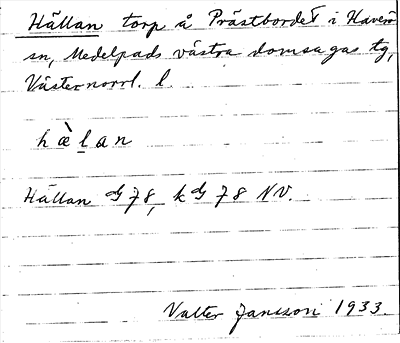 Hällan torp å Prästbordet i Haverö
sn, Medelpads västra domsagas tg,
Västernorrl. l.
h æ̀ l a n
Hällan dg 78, k dg 78 NV.
Valter Jansson 1933.